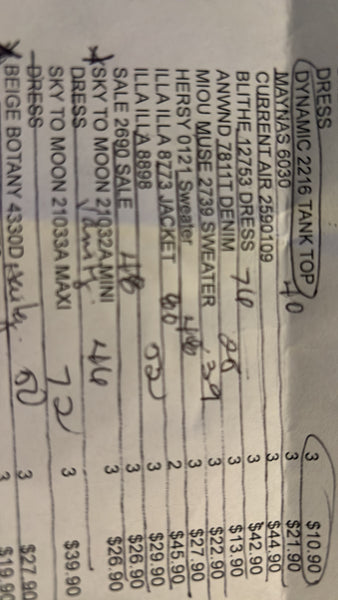 DRESS
DYNAMIC 2216 TANK TOP 3 $10.90
MAYNAS 6030 40 3 $21.90
CURRENT AIR 2590109 3 $44.90
BLITHE 12753 DRESS 76 3 $42.90
ANWND 7811T DENIM 3 $13.90
MIOU MUSE 2739 SWEATER 39 3 $22.90
HERSY 0121 Sweater 48 3 $27.90
ILLA ILLA 8773 JACKET 80 2 $45.90
ILLA ILLA 8898 52 3 $29.90
SALE 2690 SALE 48 3 $26.90
SKY TO MOON 21032A MINI 3 $26.90
DRESS 46
SKY TO MOON 21033A MAXI 72 3 $39.90
DRESS
BEIGE BOTANY 4330D 3 $27.90
3 $19.90